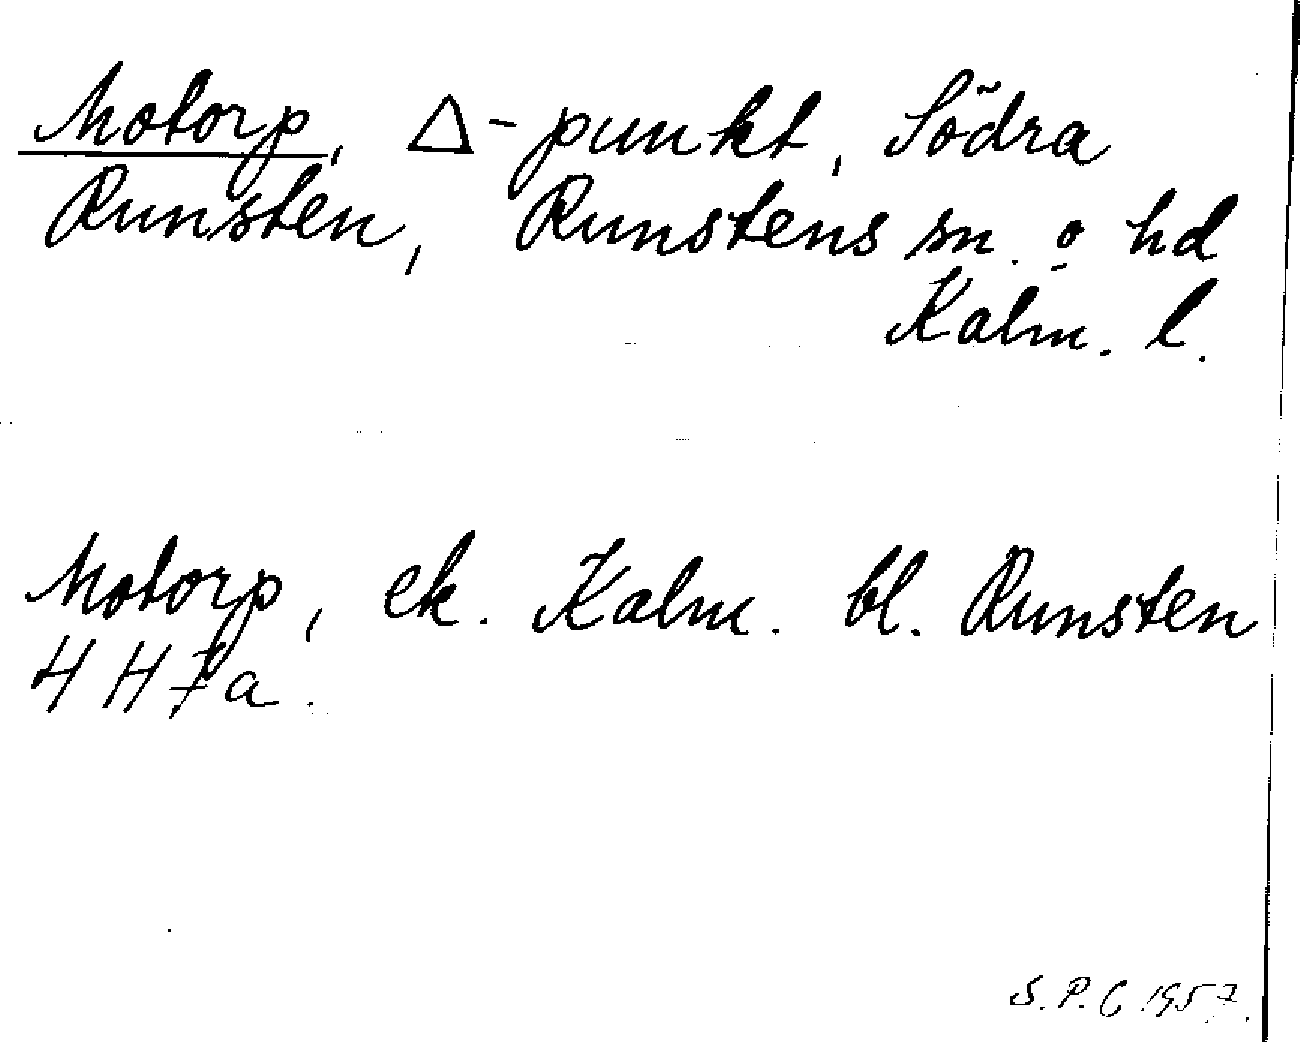 Motorp, Δ-punkt, Södra
Runsten, Runstens sn. o hd
Kalm. l.
Motorp, ek. Kalm. bl. Runsten
4 H 7 a.
S.P.G 1957.